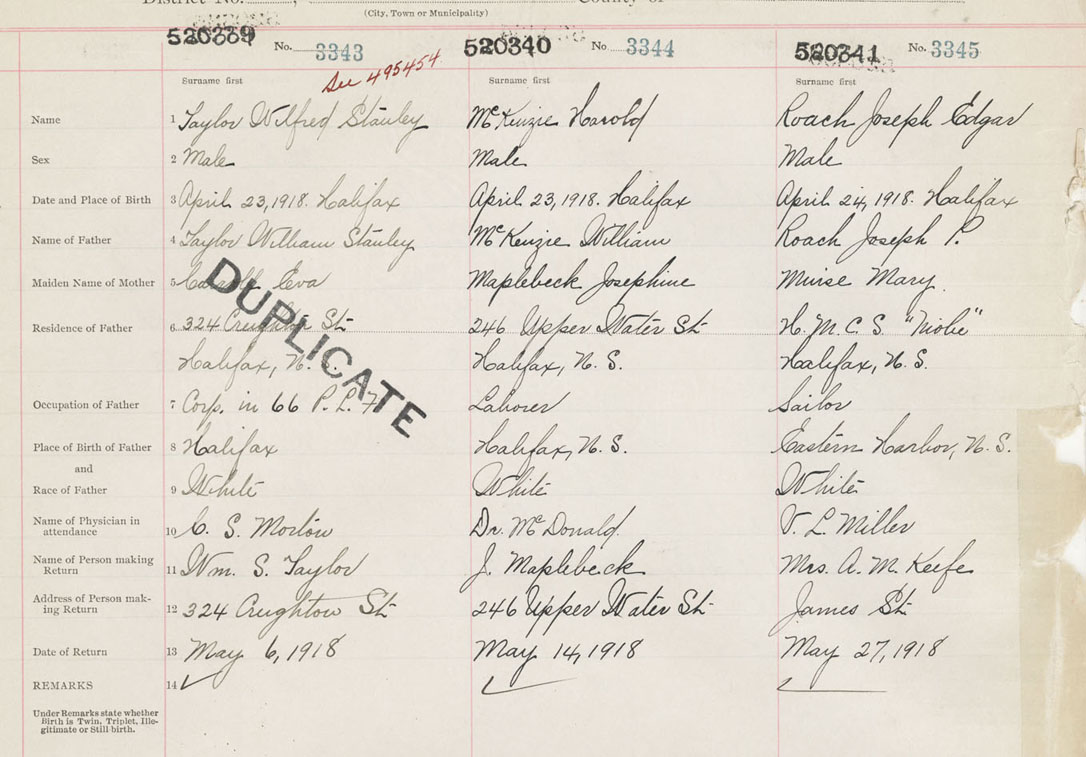 District No. , County of
(City, Town or Municipality)
520339 No. 3343 520340 No 3344 520341 No. 3345
See 495454
Surname first Surname first Surname first
Name 1 Taylor Wilfred Stanley McKenzie Harold Roach Joseph Edgar
Sex 2 Male Male Male
Date and Place of Birth 3 April 23, 1918. Halifax April 23, 1918. Halifax April 24, 1918. Halifax
Name of Father 4 Taylor William Stanley McKenzie William Roach Joseph P.
Maiden Name of Mother 5 Eva Maplebeck Josephine Muise Mary
Residence of Father 6 324 Creighton St 246 Upper Water St H.M.C.S. "Niobe"
Halifax, N.S. Halifax, N.S. Halifax, N.S.
DUPLICATE
Occupation of Father 7 Corp. in 66 P.L.F. Laborer Sailor
Place of Birth of Father 8 Halifax Halifax, N.S. Eastern Harbor, N.S.
and
Race of Father 9 White White White
Name of Physician in
attendance 10 C. S. Morton Dr. McDonald V. L. Miller
Name of Person making
Return 11 Wm. S. Taylor J. Maplebeck Mrs. A. M. Keefe
Address of Person mak-
ing Return 12 324 Creighton St 246 Upper Water St James St
Date of Return 13 May 6, 1918 May 14, 1918 May 27, 1918
REMARKS 14
Under Remarks state whether
Birth is Twin, Triplet, Ille-
gitimate or Still birth.